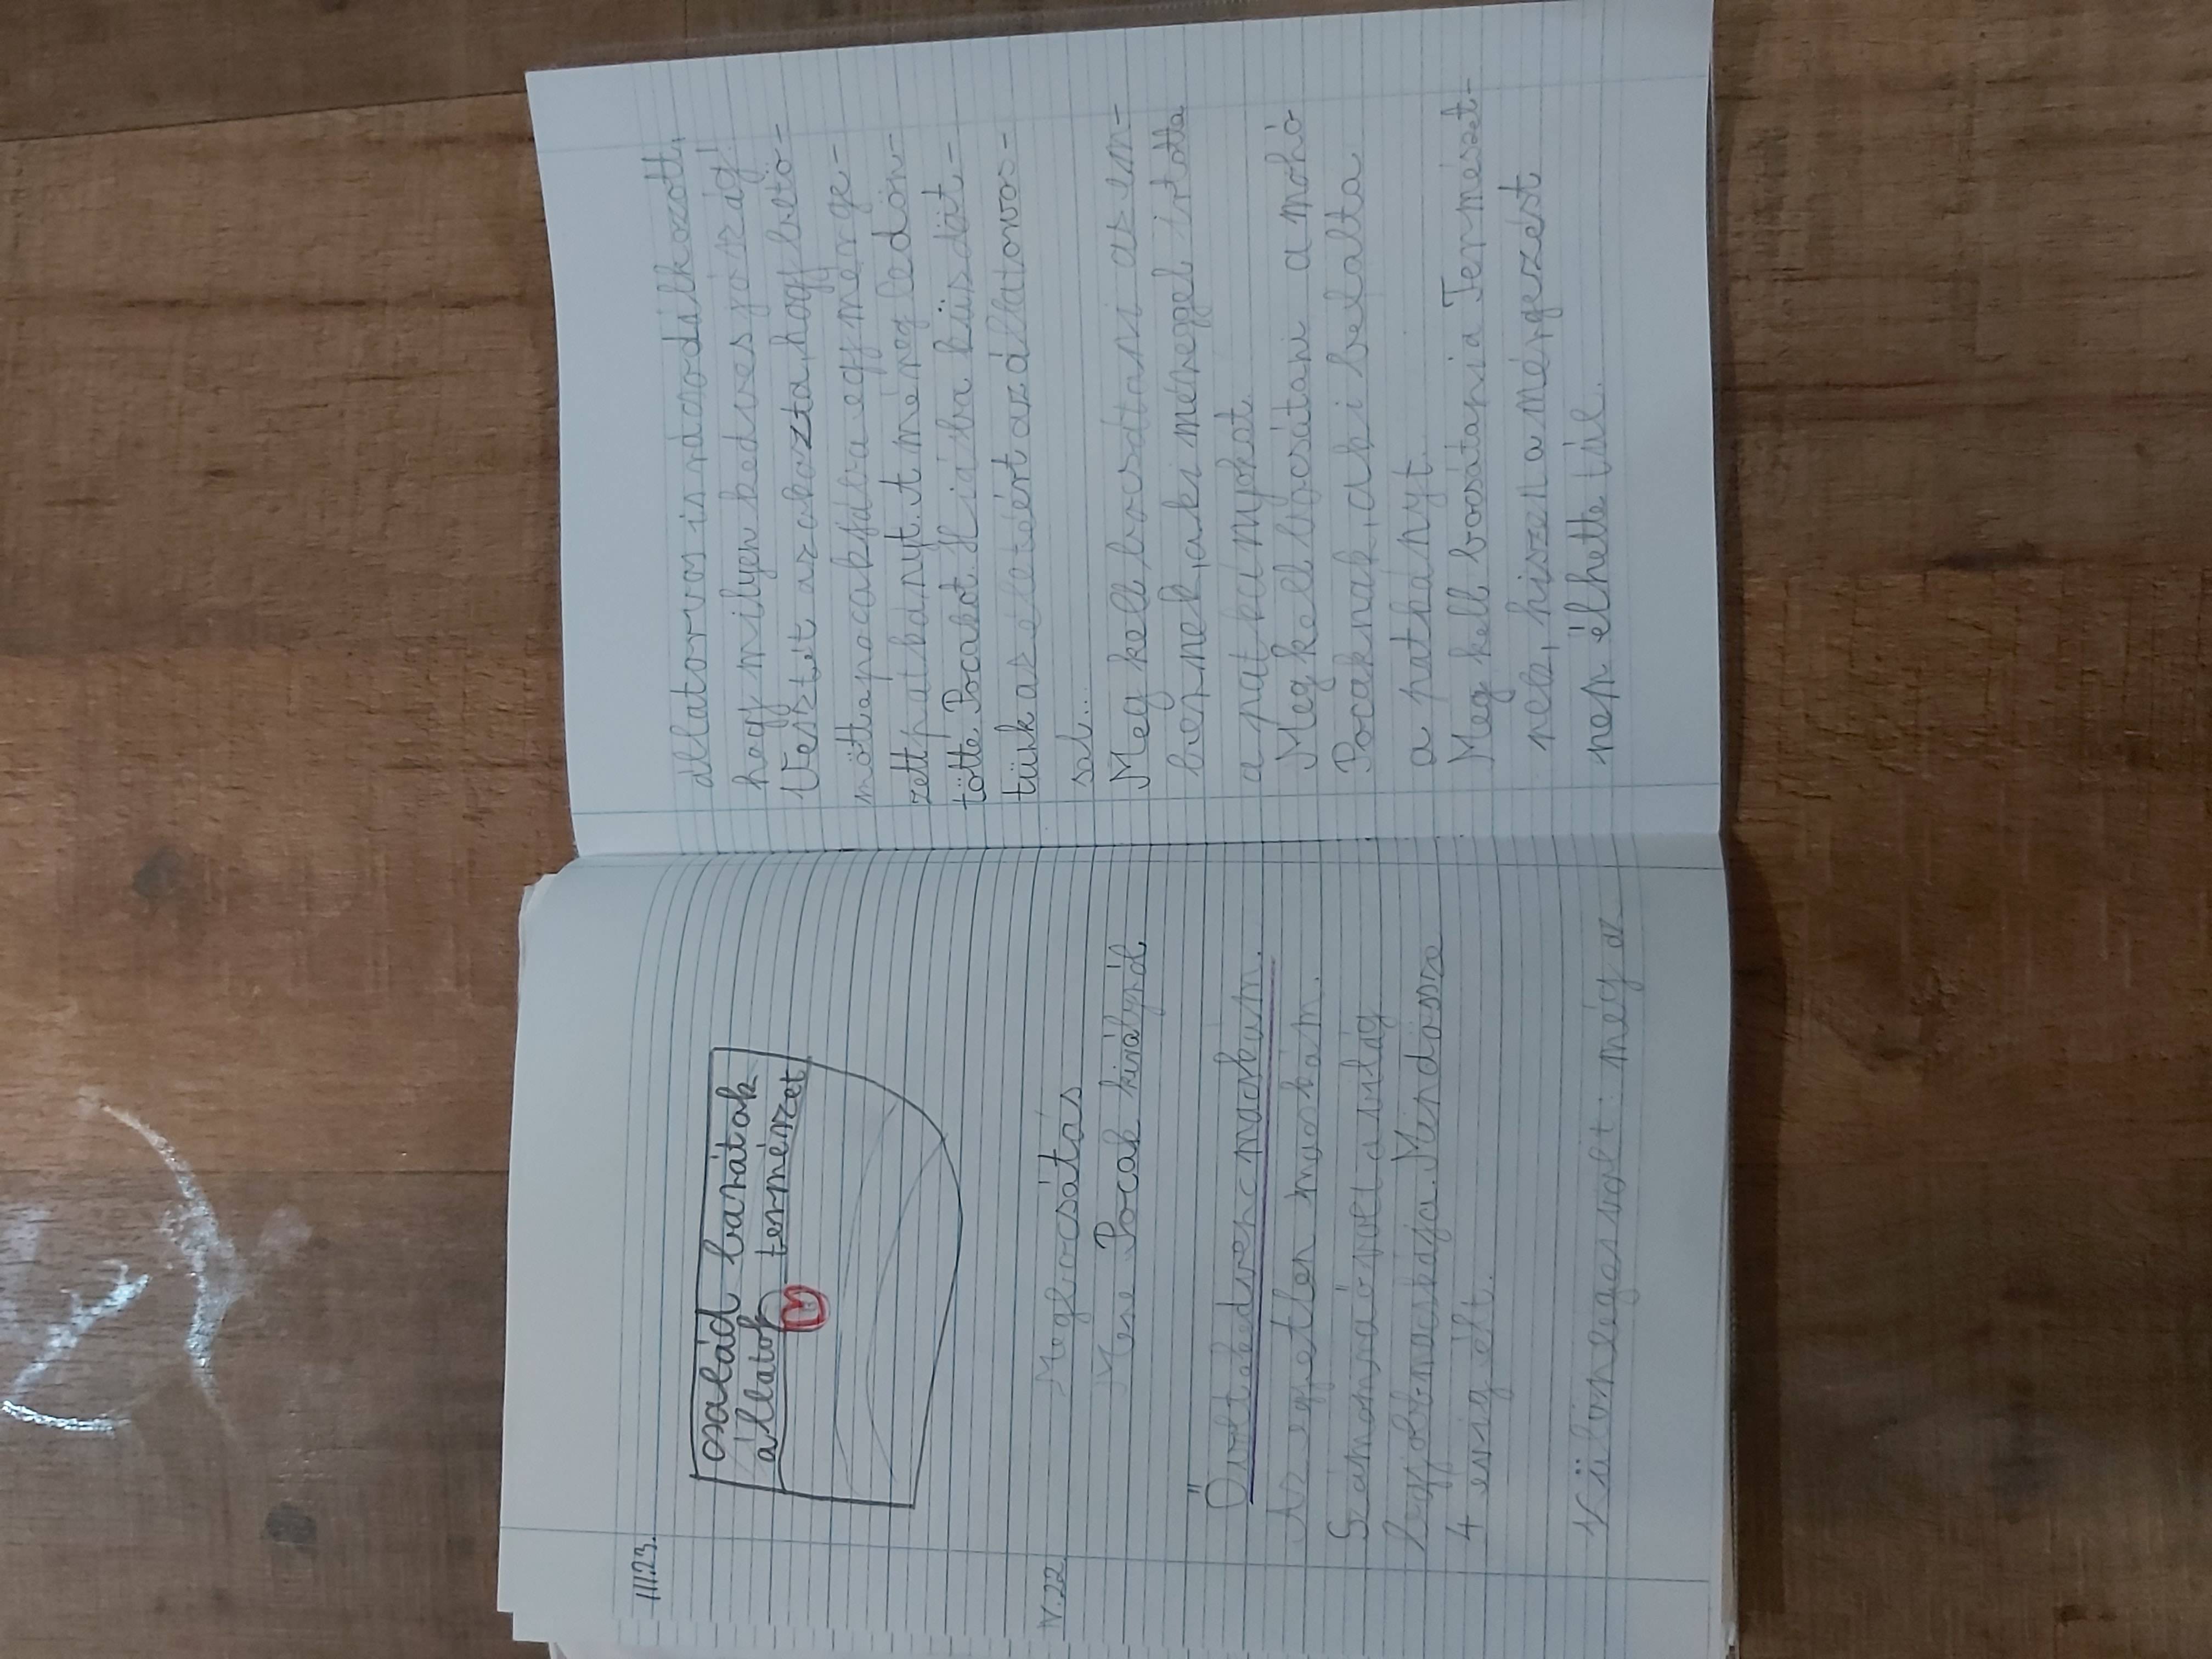 III.23.
család barátok
állatok természet
IV.22. Megbocsátás
Mese Pocak királyról.
Ő volt a kedvenc macskám.
Az egyetlen macskám.
Számomra ő volt a világ
legjobb macskája. Mindössze
4 évig élt.
Különleges volt: még az
állatorvos is rácsodálkozott,
hogy milyen kedves jószág!
Vesztét az okozta, hogy betö-
mötte a pocakjába egy mérge-
zett patkányt. A méreg ledön-
tötte Pocakot. Hiába küzdöt-
tünk az életéért az állatorvos-
sal...
Meg kell bocsátani az em-
bernek, aki méreggel irtotta
a patkányokat.
Meg kell bocsátani a mohó
Pocaknak, aki befalta
a patkányt.
Meg kell bocsátani a Természet-
nek, hiszen a mérgezést
nem élhette túl.